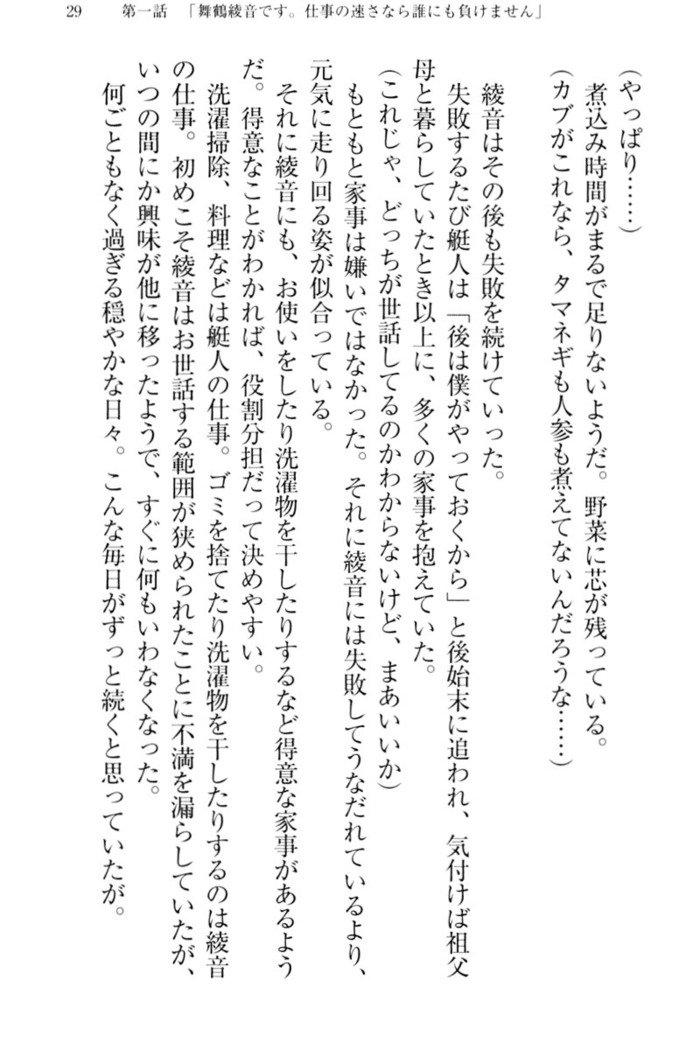 29　第一話　「舞鶴綾音です。仕事の速さなら誰にも負けません」
（やっぱり……）
　煮込み時間がまるで足りないようだ。野菜に芯が残っている。
（カブがこれなら、タマネギも人参も煮えてないんだろうな……）
　綾音はその後も失敗を続けていった。
　失敗するたび艇人は「後は僕がやっておくから」と後始末に追われ、気付けば祖父
母と暮らしていたとき以上に、多くの家事を抱えていた。
（これじゃ、どっちが世話してるのかわからないけど、まあいいか）
　もともと家事は嫌いではなかった。それに綾音には失敗してうなだれているより、
元気に走り回る姿が似合っている。
　それに綾音にも、お使いをしたり洗濯物を干したりするなど得意な家事があるよう
だ。得意なことがわかれば、役割分担だって決めやすい。
　洗濯掃除、料理などは艇人の仕事。ゴミを捨てたり洗濯物を干したりするのは綾音
の仕事。初めこそ綾音はお世話する範囲が狭められたことに不満を漏らしていたが、
いつの間にか興味が他に移ったようで、すぐに何もいわなくなった。
　何ごともなく過ぎる穏やかな日々。こんな毎日がずっと続くと思っていたが。